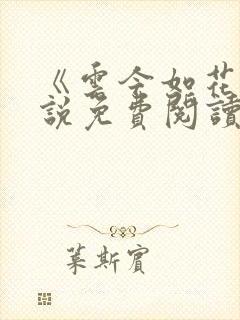 《雲令如花
說免費閱讀
葉斯賓